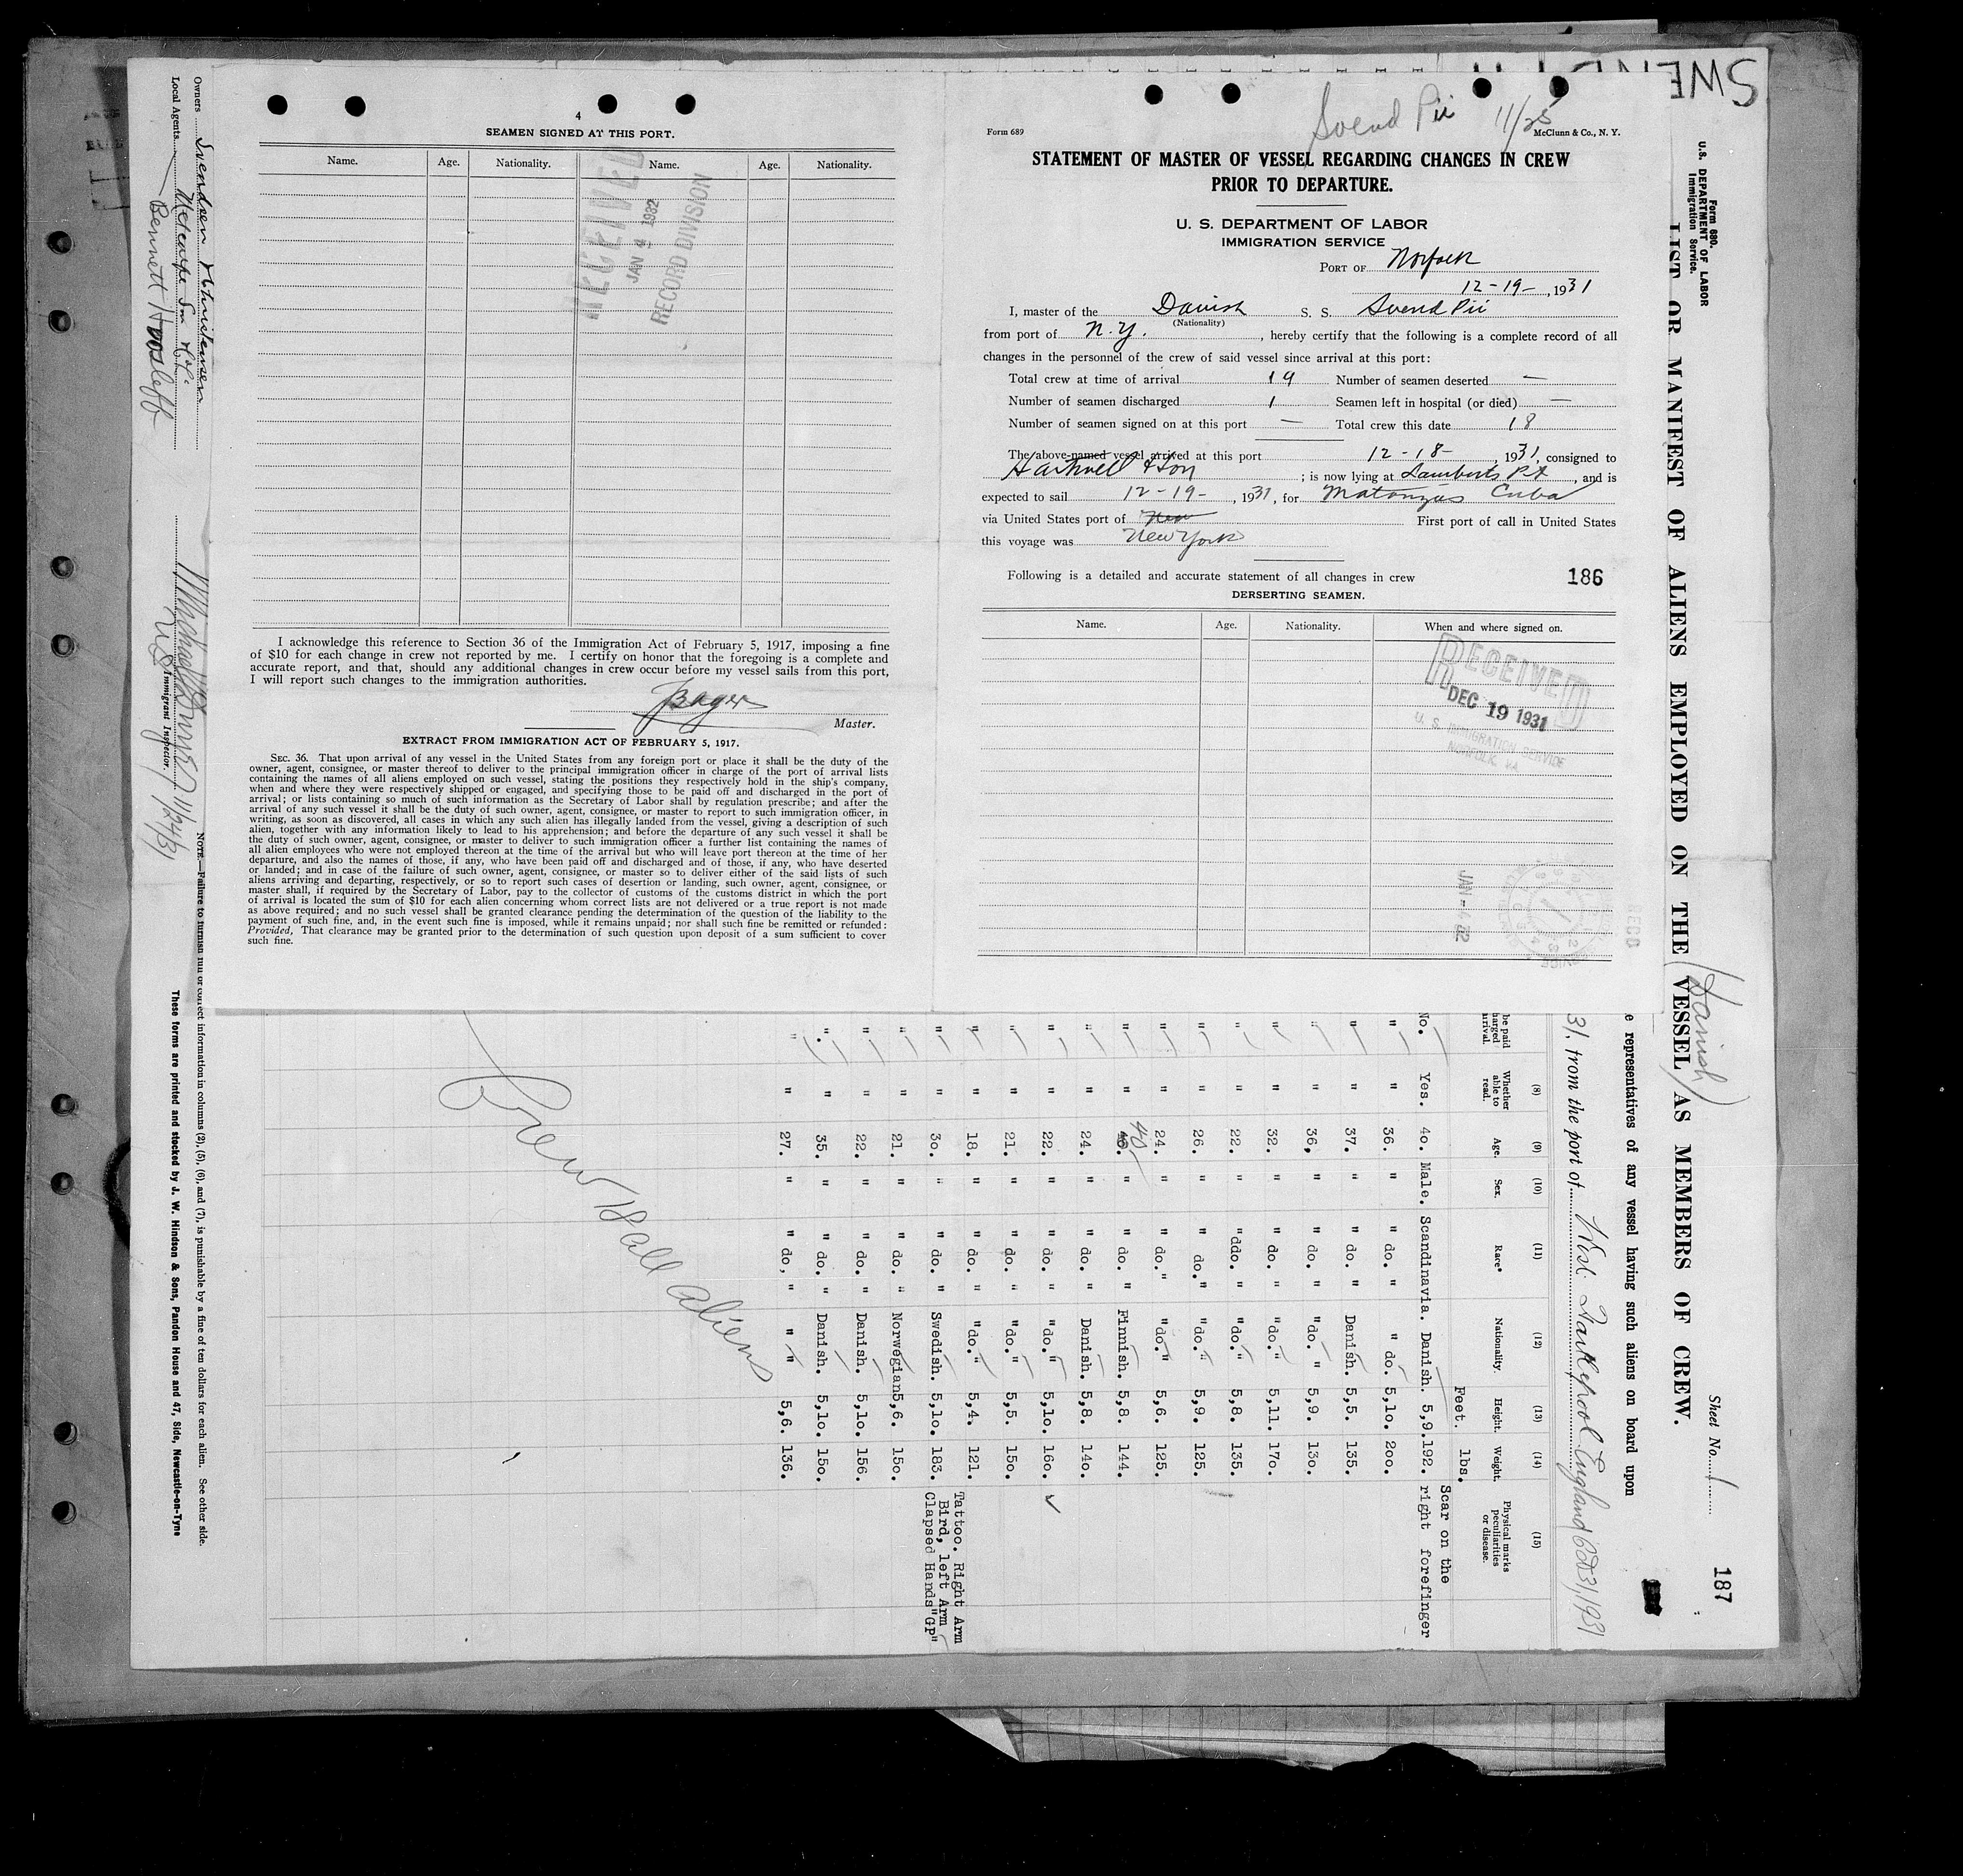 SWEND
4
SEAMEN SIGNED AT THIS PORT.
Name. Age. Nationality. Name. Age. Nationality.
RECEIVED
JAN 4 1932
RECORD DIVISION
I acknowledge this reference to Section 36 of the Immigration Act of February 5, 1917, imposing a fine
of $10 for each change in crew not reported by me. I certify on honor that the foregoing is a complete and
accurate report, and that, should any additional changes in crew occur before my vessel sails from this port,
I will report such changes to the immigration authorities.
Bager
Master.
EXTRACT FROM IMMIGRATION ACT OF FEBRUARY 5, 1917.
SEC. 36. That upon arrival of any vessel in the United States from any foreign port or place it shall be the duty of the
owner, agent, consignee, or master thereof to deliver to the principal immigration officer in charge of the port of arrival lists
containing the names of all aliens employed on such vessel, stating the positions they respectively hold in the ship's company,
when and where they were respectively shipped or engaged, and specifying those to be paid off and discharged in the port of
arrival; or lists containing so much of such information as the Secretary of Labor shall by regulation prescribe; and after the
arrival of any such vessel it shall be the duty of such owner, agent, consignee, or master to report to such immigration officer, in
writing, as soon as discovered, all cases in which any such alien has illegally landed from the vessel, giving a description of such
alien, together with any information likely to lead to his apprehension; and before the departure of any such vessel it shall be
the duty of such owner, agent, consignee, or master to deliver to such immigration officer a further list containing the names of
all alien employees who were not employed thereon at the time of the arrival but who will leave port thereon at the time of her
departure, and also the names of those, if any, who have been paid off and discharged and of those, if any, who have deserted
or landed; and in case of the failure of such owner, agent, consignee, or master so to deliver either of the said lists of such
aliens arriving and departing, respectively, or so to report such cases of desertion or landing, such owner, agent, consignee, or
master shall, if required by the Secretary of Labor, pay to the collector of customs of the customs district in which the port
of arrival is located the sum of $10 for each alien concerning whom correct lists are not delivered or a true report is not made
as above required; and no such vessel shall be granted clearance pending the determination of the question of the liability to the
payment of such fine, and, in the event such fine is imposed, while it remains unpaid; nor shall such fine be remitted or refunded:
Provided, That clearance may be granted prior to the determination of such question upon deposit of a sum sufficient to cover
such fine.
Svend Pii 11/25
Form 689 McClunn & Co., N. Y.
STATEMENT OF MASTER OF VESSEL REGARDING CHANGES IN CREW
PRIOR TO DEPARTURE.
U. S. DEPARTMENT OF LABOR
IMMIGRATION SERVICE
PORT OF Norfolk
12-19-, 1931
I, master of the Danish S. S. Svend Pii
(Nationality)
from port of N.Y., hereby certify that the following is a complete record of all
changes in the personnel of the crew of said vessel since arrival at this port:
Total crew at time of arrival 19 Number of seamen deserted —
Number of seamen discharged 1 Seamen left in hospital (or died) —
Number of seamen signed on at this port — Total crew this date 18
The above-named vessel arrived at this port 12-18-, 1931, consigned to
Hartwell & Son; is now lying at Lamberts Pt, and is
expected to sail 12-19-, 1931, for Matanzas Cuba
via United States port of New First port of call in United States
this voyage was New York
Following is a detailed and accurate statement of all changes in crew 186
DERSERTING SEAMEN.
Name. Age. Nationality. When and where signed on.
RECEIVED
DEC 19 1931
U. S. IMMIGRATION SERVICE
NORFOLK, VA
JAN - 4 32
RECD
Form 680.
U.S. DEPARTMENT OF LABOR
Immigration Service.
Sheet No. 1
187
LIST OR MANIFEST OF ALIENS EMPLOYED ON THE VESSEL AS MEMBERS OF CREW.
(Danish)
e representatives of any vessel having such aliens on board upon
31, from the port of West Hartlepool England Oct 31, 1931
(8) (9) (10) (11) (12) (13) (14) (15)
be paid
harged
rrival.
Whether
able to
read.
Age. Sex. Race* Nationality. Height. Weight. Physical marks
peculiarities
or disease.
Feet. lbs.
Scar on the
No. Yes. 40. Male. Scandinavia. Danish. 5,9. 192. right forefinger
" " 36. " " do. " " do. 5,10. 200.
" " 37. " " do. " Danish. 5,5. 135.
" " 36, " " do. " "do. " 5,9. 130.
" " 32. " " do. " "do." 5,11. 170.
" " 22. " "ddo. " "do." 5,8. 135.
" " 26. " " do." "do." 5,9. 125.
" " 24. " " do." "do." 5,6. 125.
" " 40 " " do. " Finnish. 5,8. 144.
" " 24. " " do. " Danish. 5,8. 140.
" " 22. " " do. " "do." 5,10. 160. ✓
" " 21. " " do. " "do." 5,5. 150.
" " 18. " " do. " "do." 5,4. 121.
Tattoo. Right Arm
Bird, left Arm
" " 30. " " do. " Swedish. 5,10. 183. Clapsed Hands "Gp"
" " 21. " " do. " Norwegian 5,6. 150.
" " 22. " " do. " Danish. 5,10. 156.
" " 35. " " do. " Danish. 5,10. 150.
" " 27. " " do, " " " 5,6. 136.
Crew 18 all aliens
Owners Svendsen & Christensen
Local Agents Metcalfe Son & Co.
Bennett Hvosleff
Immigrant Inspector.
11/24/31
NOTE.—Failure to furnish full or correct information in columns (2), (5), (6), and (7), is punishable by a fine of ten dollars for each alien. See other side.
These forms are printed and stocked by J. W. Hindson & Sons, Pandon House and 47, Side, Newcastle-on-Tyne